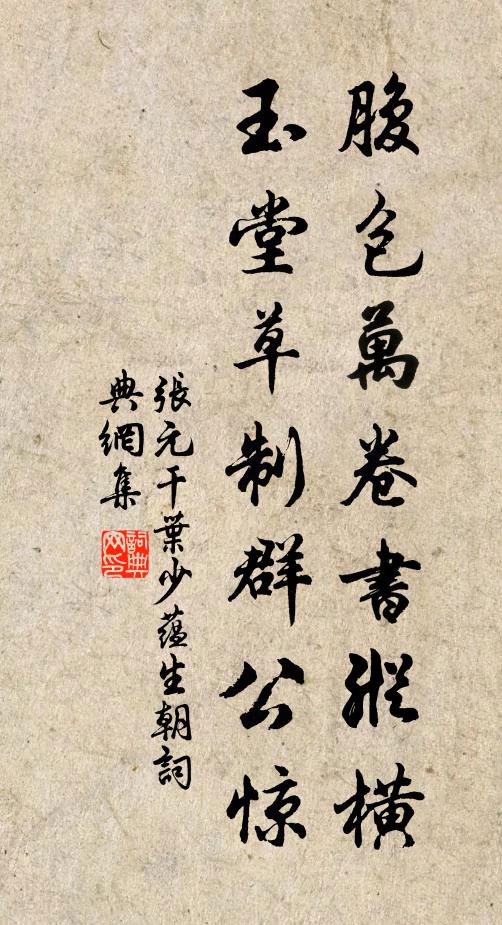 腹包萬卷書縱横
玉堂草制群公惊
張元干葉少蘊生朝詞
典網集
詞典网印